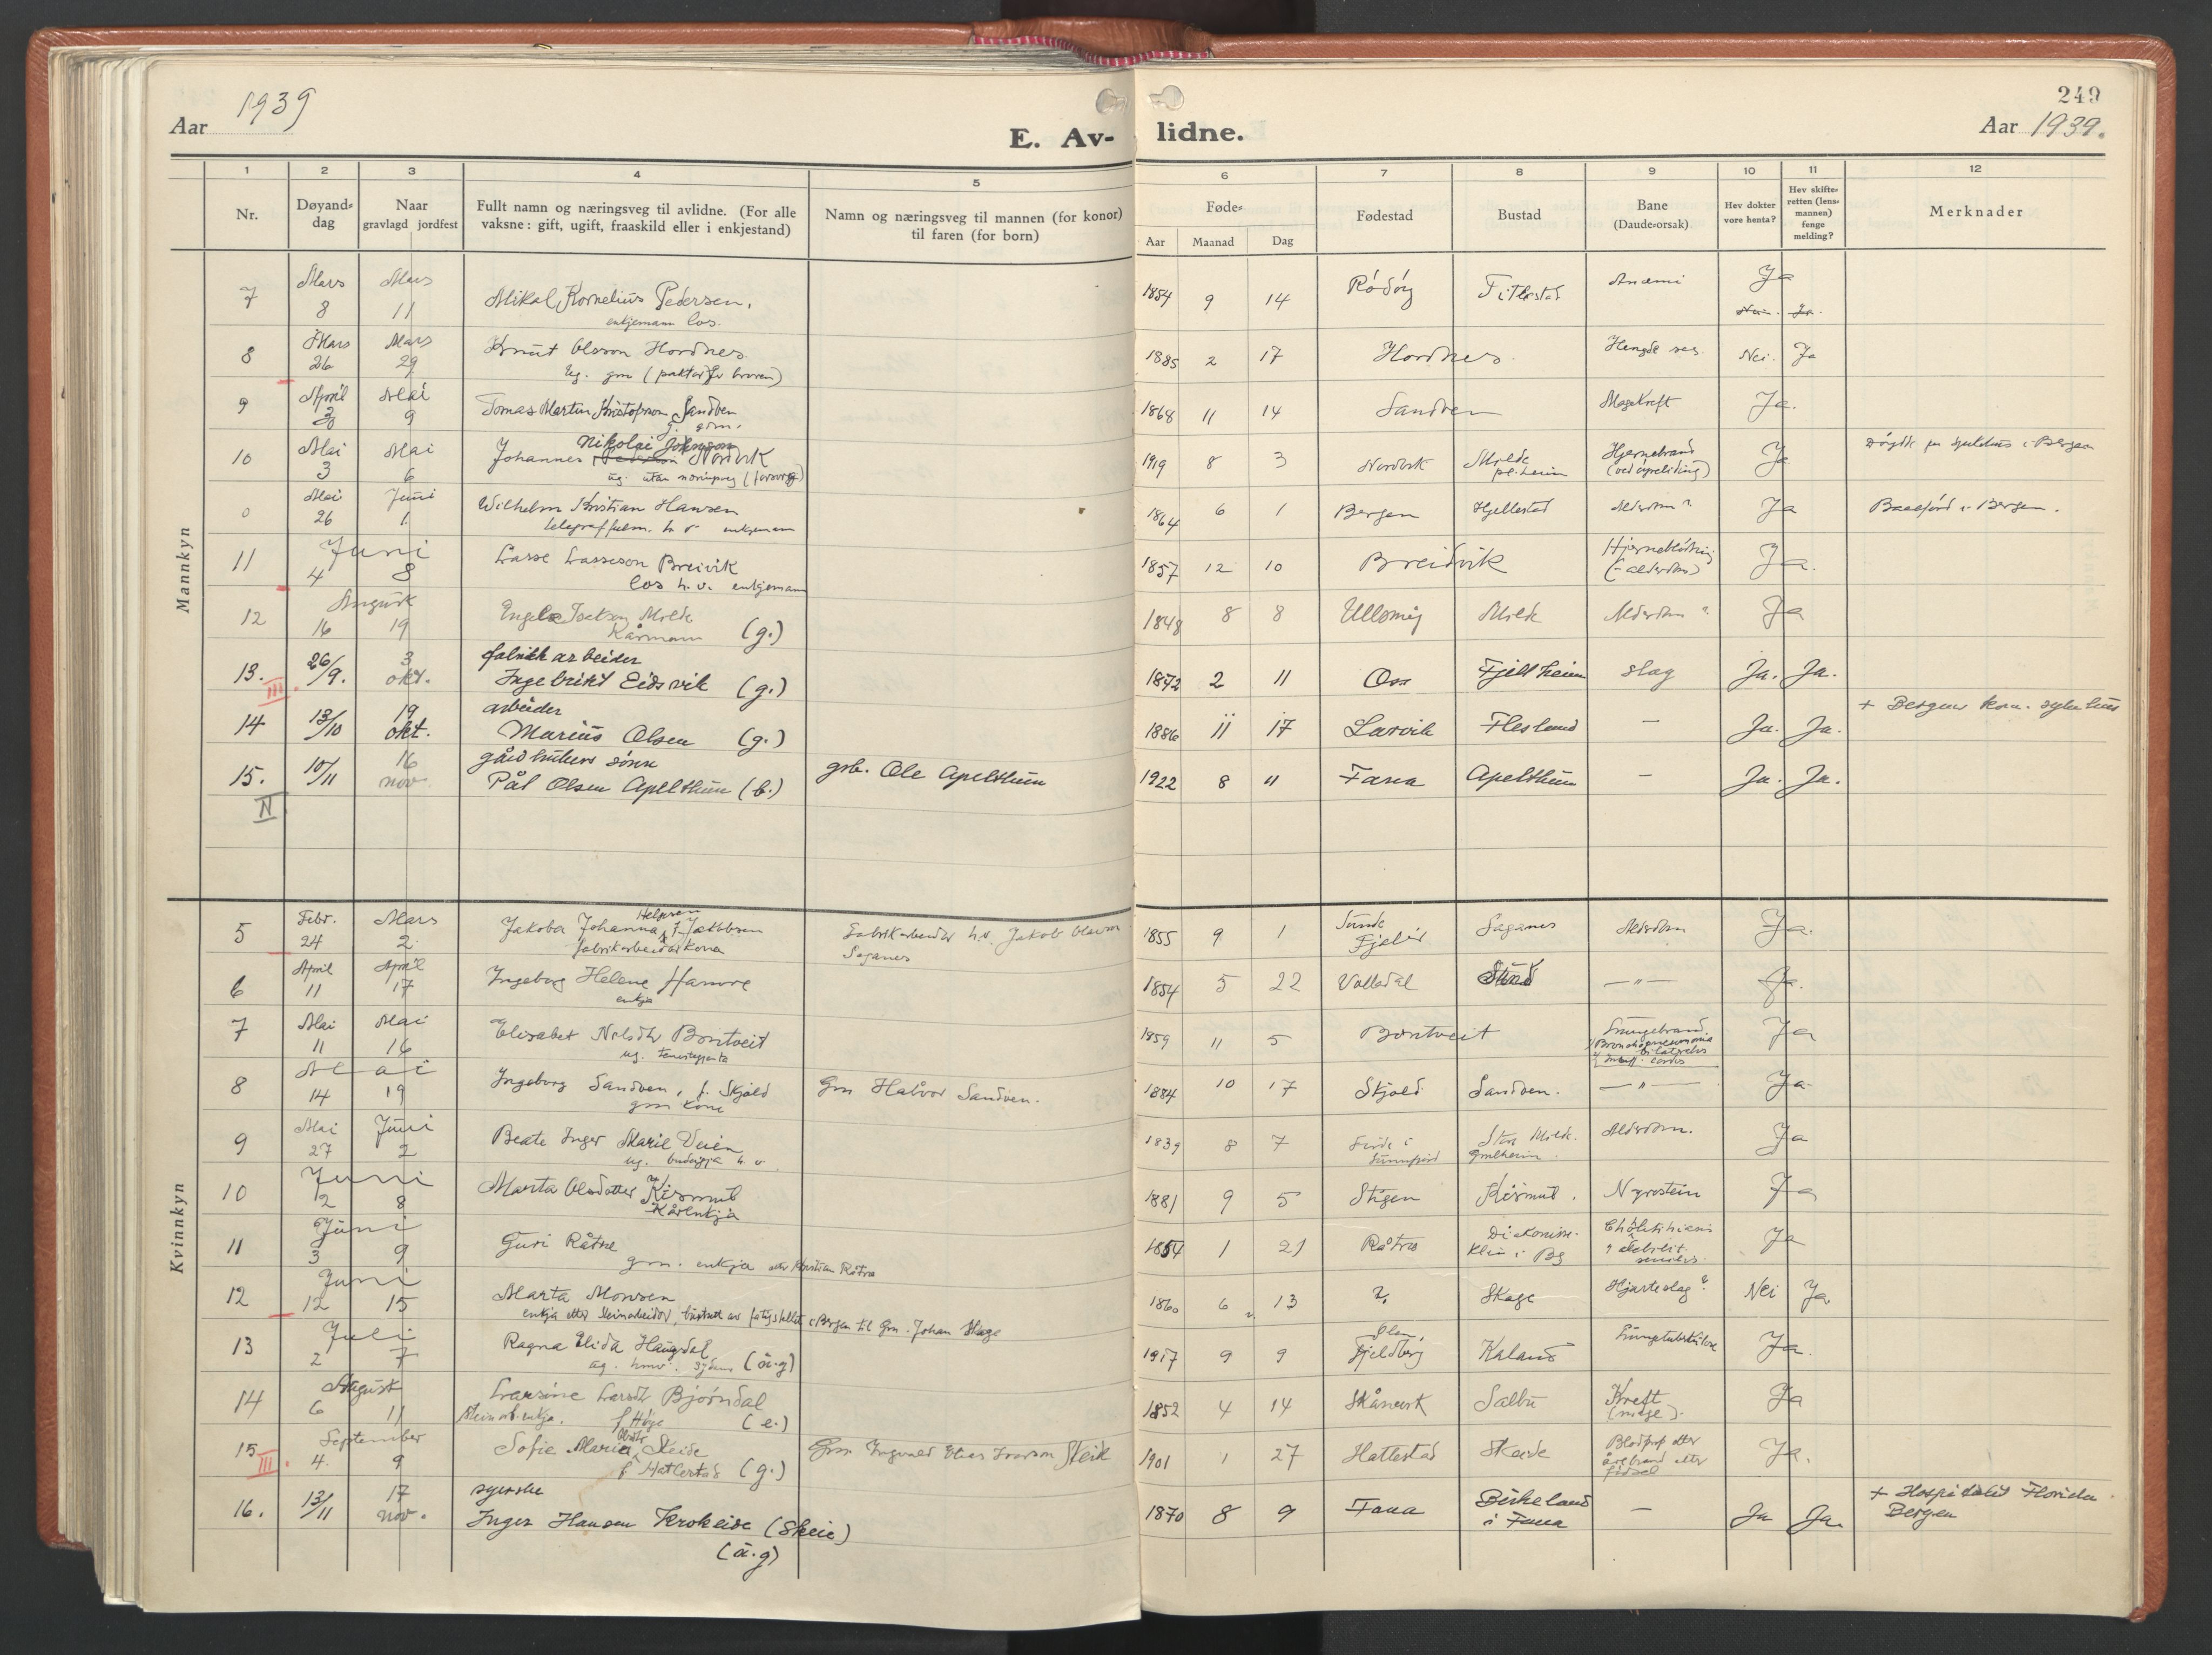 Aar 1939
E. Av-
lidne.
249
Aar 1939.
1 2 3 4 5 6 7 8 9 10 11 12
Nr.
Døyand-
dag
Naar
gravlagd jordfest
Fullt namn og næringsveg til avlidne. (For alle
vaksne: gift, ugift, fraaskild eller i enkjestand)
Namn og næringsveg til mannen (for konor)
til faren (for born)
Føde-
Aar Maanad Dag
Fødestad
Bustad
Bane
(Daude-orsak)
Hev dokter
vore henta?
Hev skifte-
retten (lens-
mannen)
fenge
melding?
Merknader
Mannkyn
7 Mars 8 Mars 11 Mikal Kornelius Pedersen, 1854 9 14 Rödöy Anæmi Ja
enkjemann los. Nei. Ja.
8 Mars 26 Mars 29 Knut Olsson Hordnes 1885 2 17 Hordnes Hengde seg. Nei. Ja
ug. gm
9 April Mai 9 Tomas Martin Kristofson Sandven 1868 11 14 Sandven Magekreft Ja.
g. gm.
10 Mai 3 Mai 6 Johannes Nikolai Nordvik 1919 8 3 Nordvik Milde Hjernebrand Ja
i Bergen
0 Mai 26 Juni 1. Wilhelm Kristian Hansen 1864 6 1 Bergen Hjellestad Alderdom? Ja Baalförd i Bergen.
enkjemann
11 Juni 4 8 Lasse Lasseson Breivik 1857 12 10 Breidvik Hjerneblödning Ja.
los h.v. enkjemann (- alderdom)
12 August 16 19 Milde 1848 8 8 Ullensvg Milde Alderdom? Ja
Kårmann (g.)
fabrikkarbeider
13. 26/9. 3 okt. Ingebrikt Eidsvik (g.) 1872 2 11 Oss Fjellheim slag Ja. Ja.
III.
arbeider
14 13/10 19 okt. Marius Olsen (g.) 1886 11 17 Larvik Flesland — Ja. Ja. + Bergens kom. sykehus
gårdbrukers sønn
15. 10/11 16 nov. Pål Olsen Apelthun (b.) grb. Ole Apelthun 1922 8 11 Fana Apelthun — Ja. Ja.
IV
Kvinnkyn
5 Febr. 24 Mars 2 Jakoba Johanna Jakobsen Fabrikarbeider h.v. Jakob Olavson 1855 9 1 Sunde Fjelir Saganes Alderdom Ja.
fabrikarbeidarkona Saganes
6 April 11 April 17 Ingeborg Helene Hamre 1854 5 22 Valldal —"— Ja.
enkja
7 Mai 11 Mai 16 Elisabet Nilsdtr Bontveit 1859 11 5 Bontveit Lungebrand. Ja
ug. tenestegjenta Bronchopneumonia bilateralis
cordis
8 Mai 14 19 Ingeborg Sandven, f. Skjold Gm Halvor Sandven. 1884 10 17 Skjold Sandven. —"— Ja
gm kone
9 Mai 27 Juni 2 Beate Inger Marie Veien 1839 8 7 Förde i Store Milde. Alderdom. Ja
ug. budeigja h. v. Sunnfjord Gmlheim.
10 Juni 2 8 Marta Olsdotter Kismul 1881 9 5 Stigen Kismul. Nyrestein Ja
Kårenkja
11 Juni 3 9 Guri Råtne 1854 1 21 Diakonisse- Ja
gm. enkja etter Kristian Råtne
12 Juni 12 15 Marta Monsen 1860 6 13 ? Skage Hjarteslag? Nei Ja
enkja etter steinarbeidar, burtsett av fatigstellet i Bergen til Gm. Johan Skage
13 Juli 2 7 Ragna Elida Haugdal 1917 9 9 Ølen, Fjeldberg Kaland Lungetuberkulose Ja.
ug. (ä.g)
14 August 6 11 Larsine Larsdtr Bjørndal 1852 4 14 Skånevik Salbu Kreft Ja
Steinarb. enkja. (e.) (mage).
15 September 4. 9 Sofie Marie Skeide Gm Ingvald Skeie 1901 1 27 Hattestad Skeide Blodprop etter Ja.
III. (g.) årebrand etter fødsel
syerske
16. 13/11 17 nov. Inger Hansen Krokeide (Skeie) 1870 8 9 Fana Birkeland i Fana — Ja Ja. + Hospitalet Florida
(ä.g) Bergen